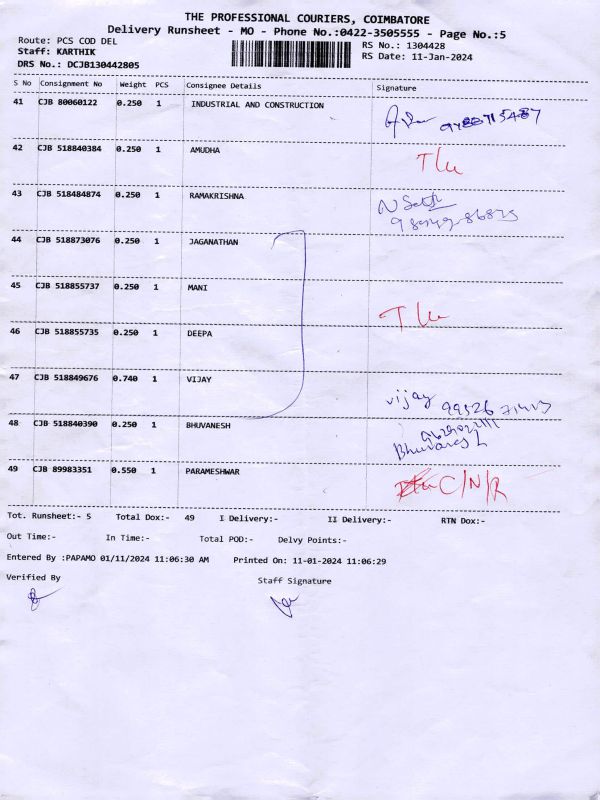 THE PROFESSIONAL COURIERS, COIMBATORE
Delivery Runsheet - MO - Phone No.:0422-3505555 - Page No.:5
Route: PCS COD DEL
Staff: KARTHIK
DRS No.: DCJB130442805
RS No.: 1304428
RS Date: 11-Jan-2024
S No Consignment No Weight PCS Consignee Details Signature
41 CJB 80060122 0.250 1 INDUSTRIAL AND CONSTRUCTION
42 CJB 518840384 0.250 1 AMUDHA
43 CJB 518484874 0.250 1 RAMAKRISHNA
44 CJB 518873076 0.250 1 JAGANATHAN
45 CJB 518855737 0.250 1 MANI
46 CJB 518855735 0.250 1 DEEPA
47 CJB 518849676 0.740 1 VIJAY vijay
48 CJB 518840390 0.250 1 BHUVANESH
49 CJB 89983351 0.550 1 PARAMESHWAR C/N/R
Tot. Runsheet:- 5 Total Dox:- 49 I Delivery:- II Delivery:- RTN Dox:-
Out Time:- In Time:- Total POD:- Delvy Points:-
Entered By :PAPAMO 01/11/2024 11:06:30 AM Printed On: 11-01-2024 11:06:29
Verified By Staff Signature